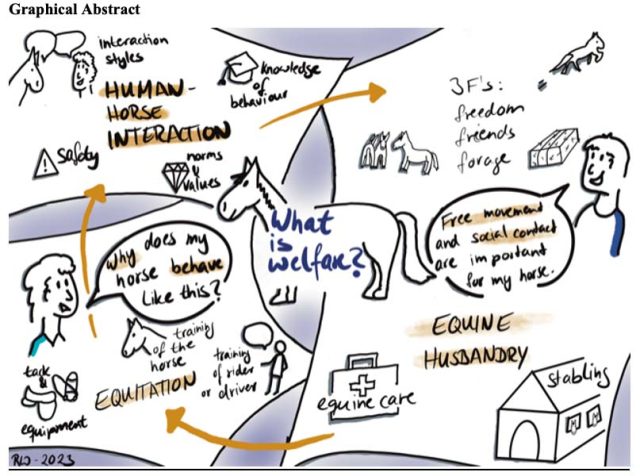 Graphical Abstract
interaction
styles
HUMAN-
HORSE
INTERACTION
knowledge
of
behaviour
safety
norms
&
values
3F's:
freedom
friends
forage
What
is
welfare?
Free movement
and social contact
are important
for my horse.
Why does my
horse behave
like this?
training
of the
horse
training
of rider
or driver
EQUITATION
tack
&
equipment
EQUINE
HUSBANDRY
equine care
stabling
RLJ - 2023